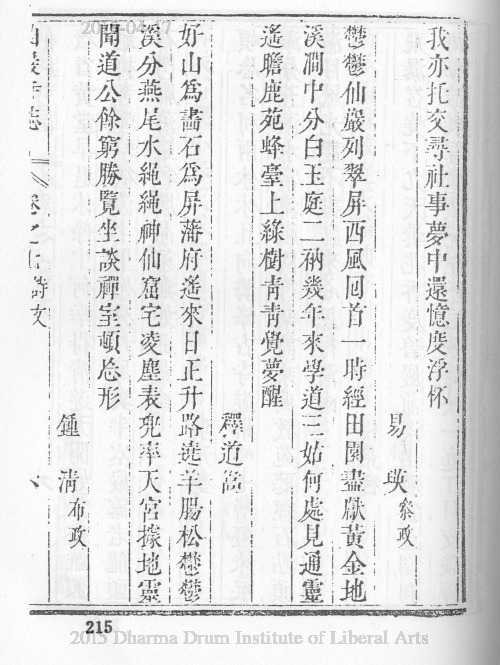 我亦托交尋社事夢中還憶度浮杯
易 瑛 叅政
鬱鬱仙巖列翠屏西風回首一時經田園盡獻黃金地
溪澗中分白玉庭二衲幾年來學道三姑何處見通靈
遙瞻鹿苑蜂臺上綠樹青青覺夢醒
釋道
好山為畵石為屏藩府遙來日正升路遶羊腸松鬱鬱
溪分燕尾水繩繩神仙窟宅凌塵表兠率天宮據地靈
聞道公餘窮勝覽坐談禪室頓忘形
鍾 清 布政
巖寺志 卷之七詩文 八
215
2015 Dharma Drum Institute of Liberal Arts